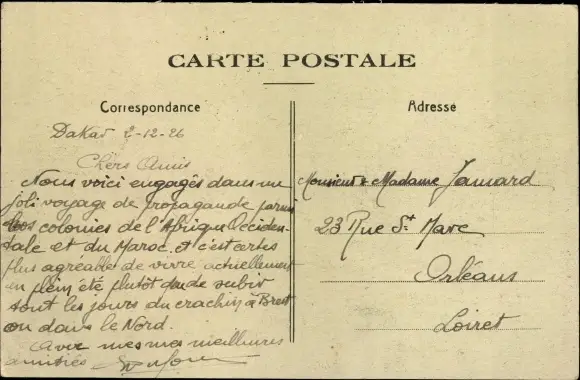 CARTE POSTALE
Correspondance
Adresse
Dakar 2-12-26
Chers Amis
Nous voici engagés dans un
joli voyage de propagande parmi
nos colonies de l'Afrique Occiden-
tale et du Maroc, et c'est certes
plus agréable de vivre actuellement
en plein été plutôt que de subir
tous les jours du crachin à Brest
ou dans le Nord.
Avec mes meilleures
amitiés
Monsieur & Madame Jamard
23 Rue St Marc
Orléans
Loiret